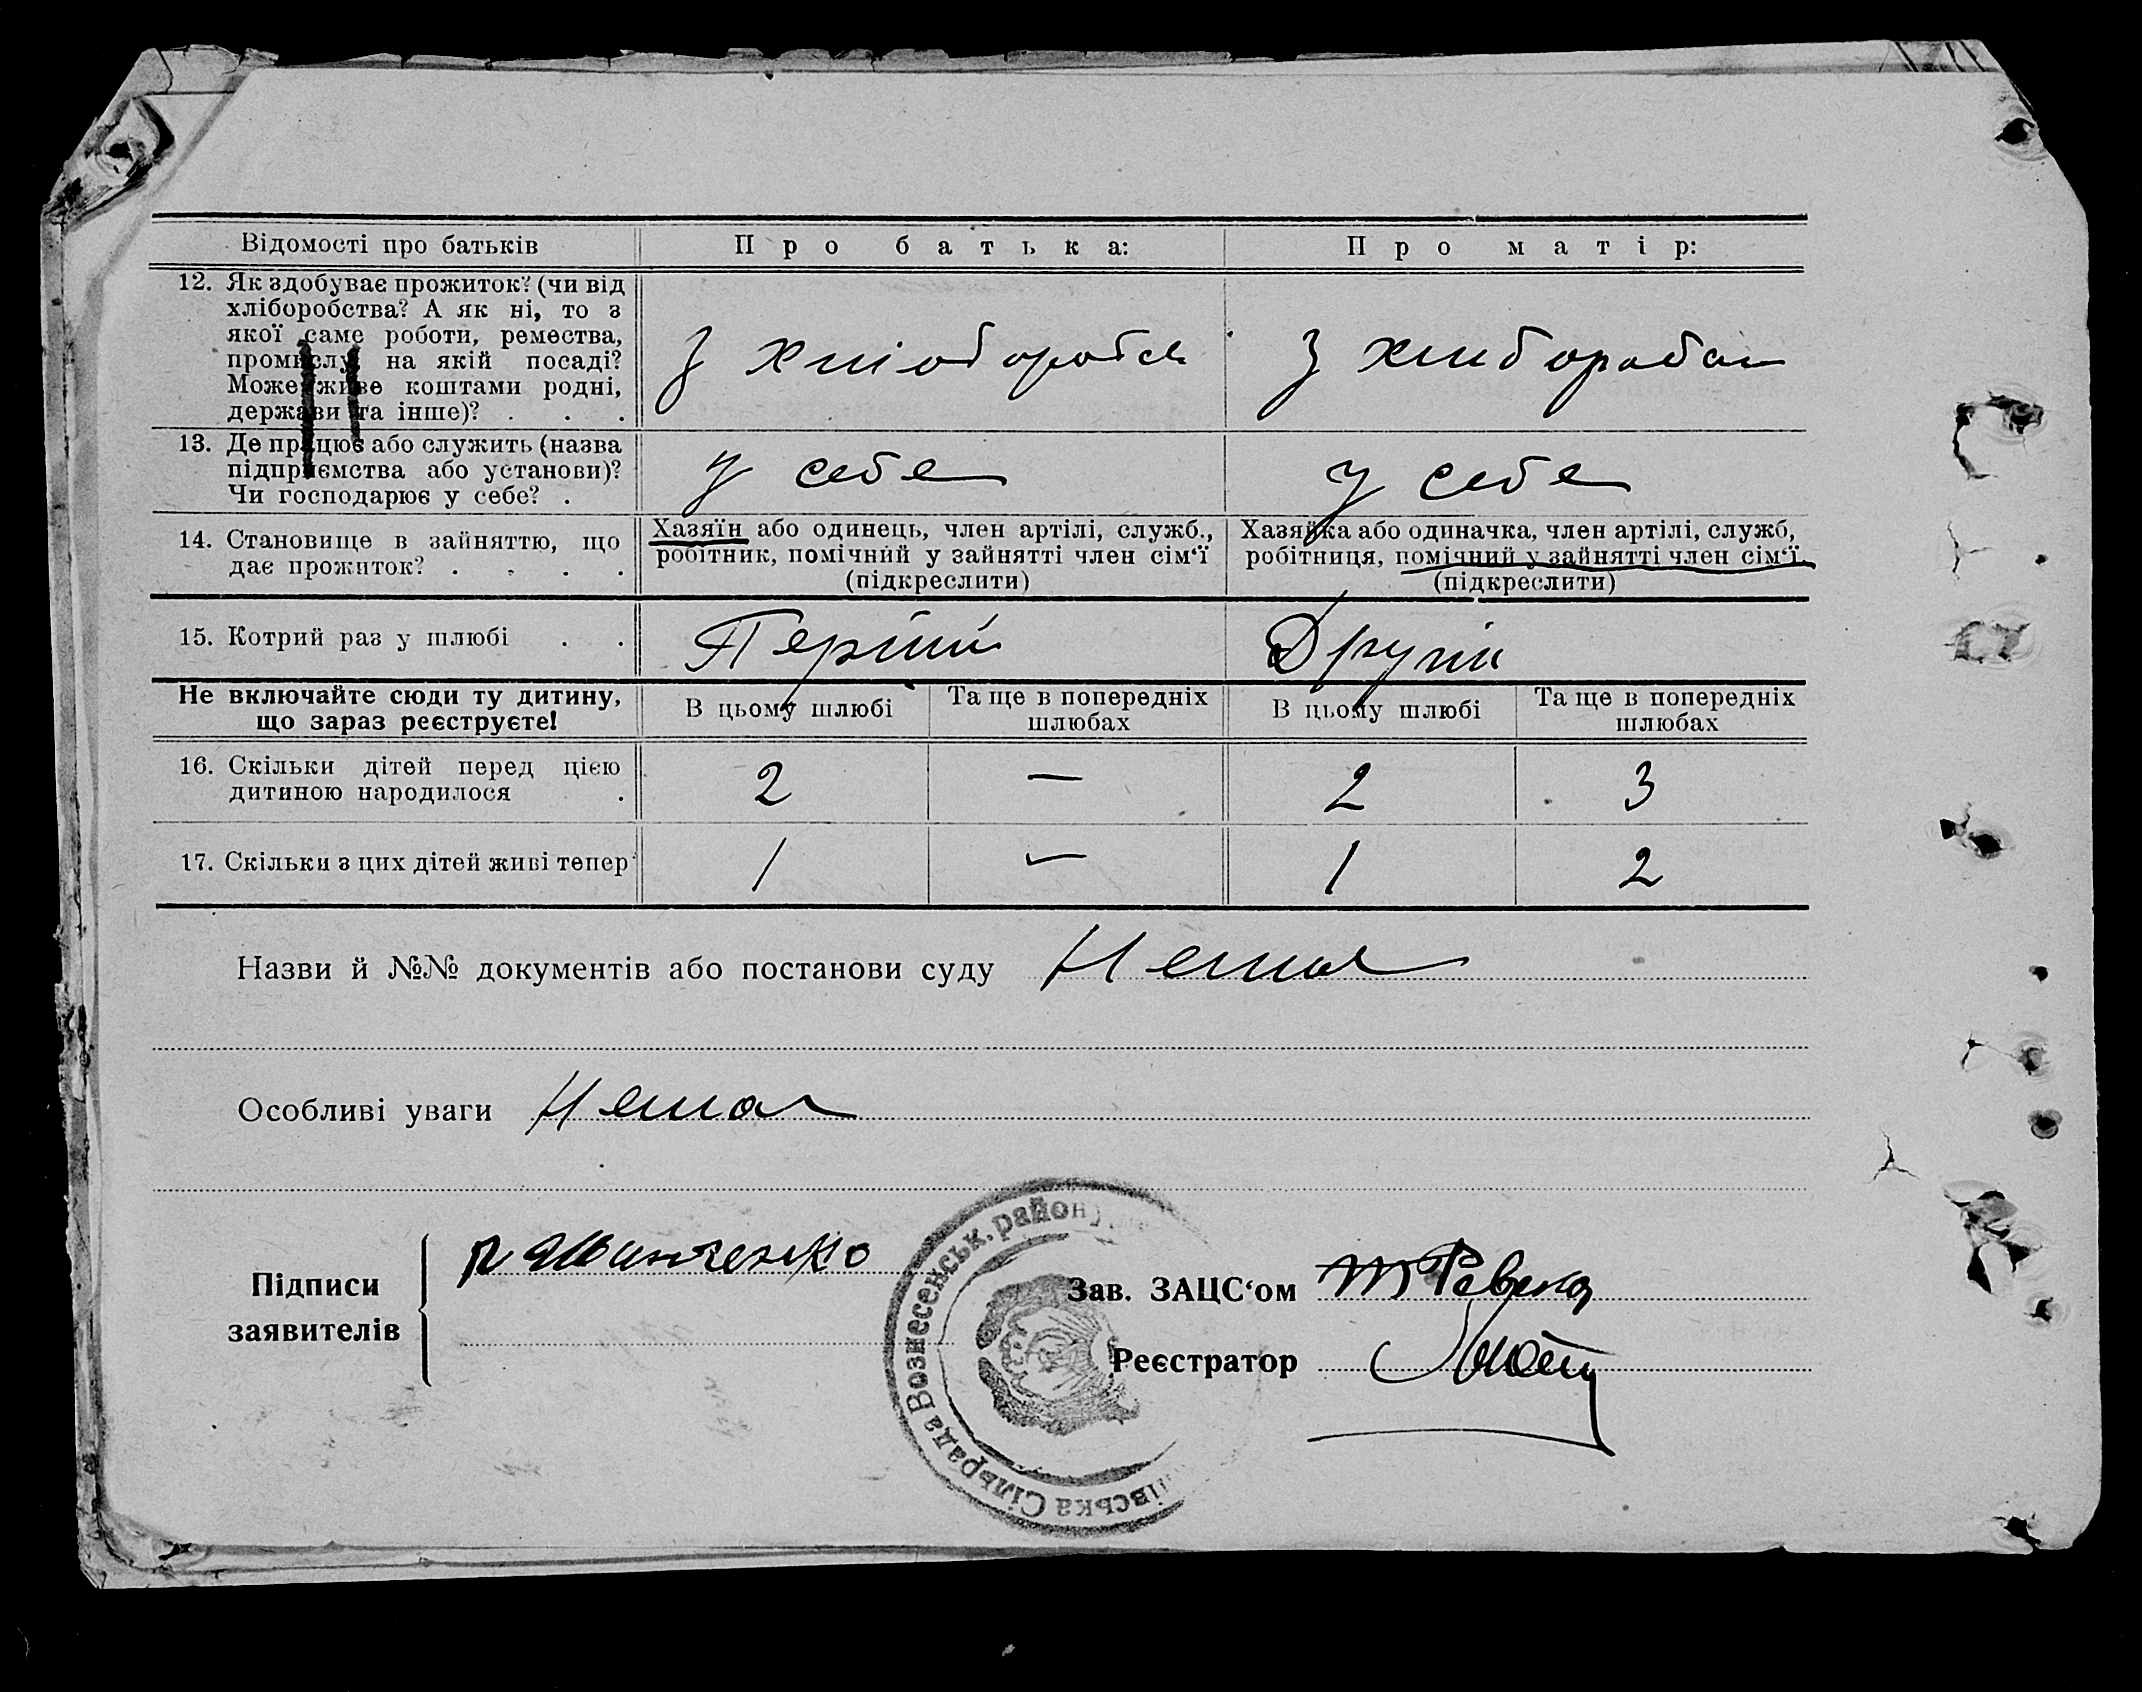 Відомості про батьків Про батька: Про матір:
12. Як здобуває прожиток? (чи від
хліборобства? А як ні, то з
якої саме роботи, ремества,
промислу, на якій посаді?
Може живе коштами родні,
держави та інше)? . . .
З хліоборобсв З хлиборобсв
13. Де працює або служить (назва
підприємства або установи)?
Чи господарює у себе? .
у себе у себе
14. Становище в зайняттю, що
дає прожиток? . . . .
Хазяїн або одинець, член артілі, служб.,
робітник, помічний у зайнятті член сім‘ї
(підкреслити)
Хазяйка або одиначка, член артілі, служб,
робітниця, помічний у зайнятті член сім‘ї.
(підкреслити)
15. Котрий раз у шлюбі . . Перший Другий
Не включайте сюди ту дитину,
що зараз реєструєте!
В цьому шлюбі
Та ще в попередніх
шлюбах
В цьому шлюбі
Та ще в попередніх
шлюбах
16. Скільки дітей перед цією
дитиною народилося .
2 — 2 3
17. Скільки з цих дітей живі тепер 1 — 1 2
Назви й №№ документів або постанови суду Нема
Особливі уваги Нема
Підписи
заявителів
Зав. ЗАЦС‘ом
Реєстратор
Сільрада Вознесенськ. району